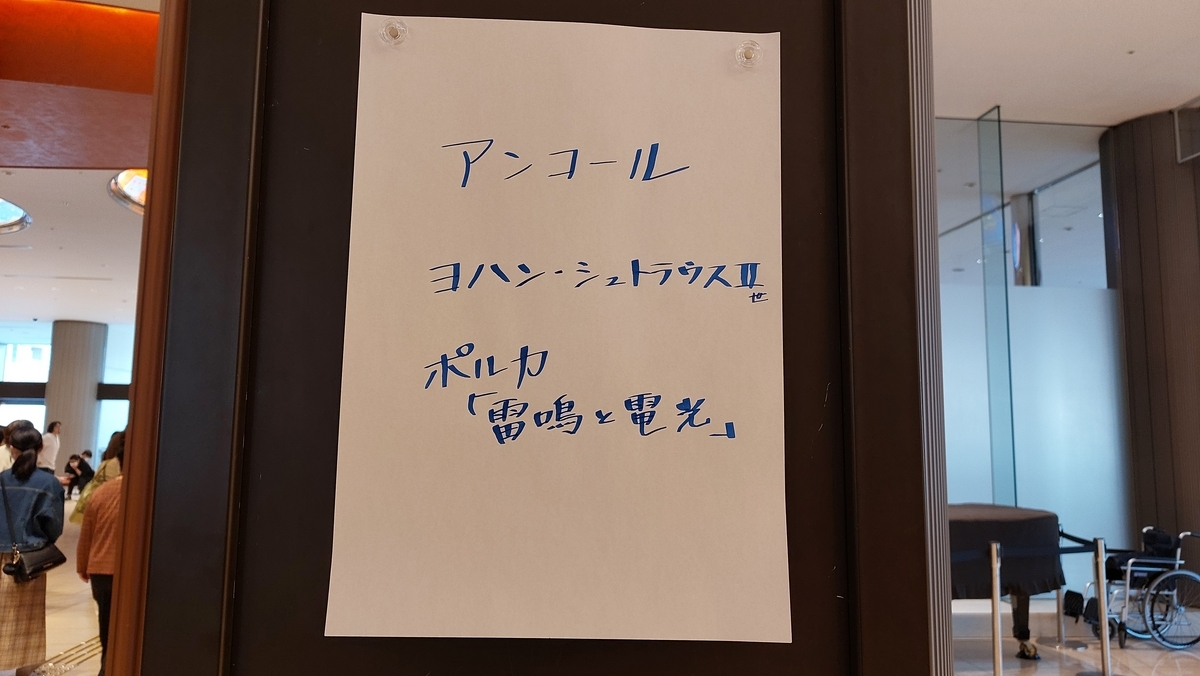 アンコール
ヨハン・シュトラウスⅡ世
ポルカ
「雷鳴と電光」